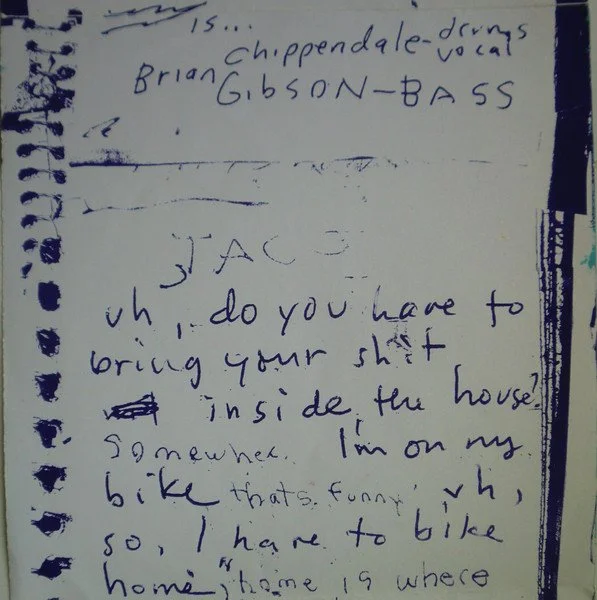 is...
chippendale-drums
vocal
Brian
GibSON-BASS
JACO
uh, do you have to
bring your shit
inside the house?
somewher. I'm on my
bike thats funny uh,
so, I have to bike
home, "home is where